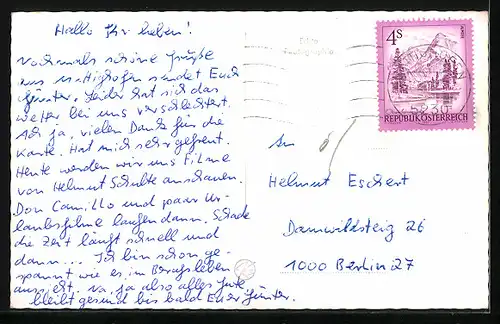 Hallo Ihr Lieben!
Nochmals schöne Grüße
aus Mattighofen sendet Euch
Günter. Leider hat sich das
Wetter bei uns verschlechtert.
Ach ja, vielen Dank für die
Karte. Hat mich sehr gefreut.
Heute werden wir uns Filme
von Helmut Schulte anschauen.
Don Camillo und paar Ur-
laubsfilme laufen dann. Schade
die Zeit läuft schnell und
dann... Ich bin schon ge-
spannt wie es im Berufsleben
aussieht. Na ja also alles Gute
bleibt gesund bis bald Euer Günter.
4S
REPUBLIK ÖSTERREICH
An
Helmut Eschert
Damwildsteig 26
1000 Berlin 27